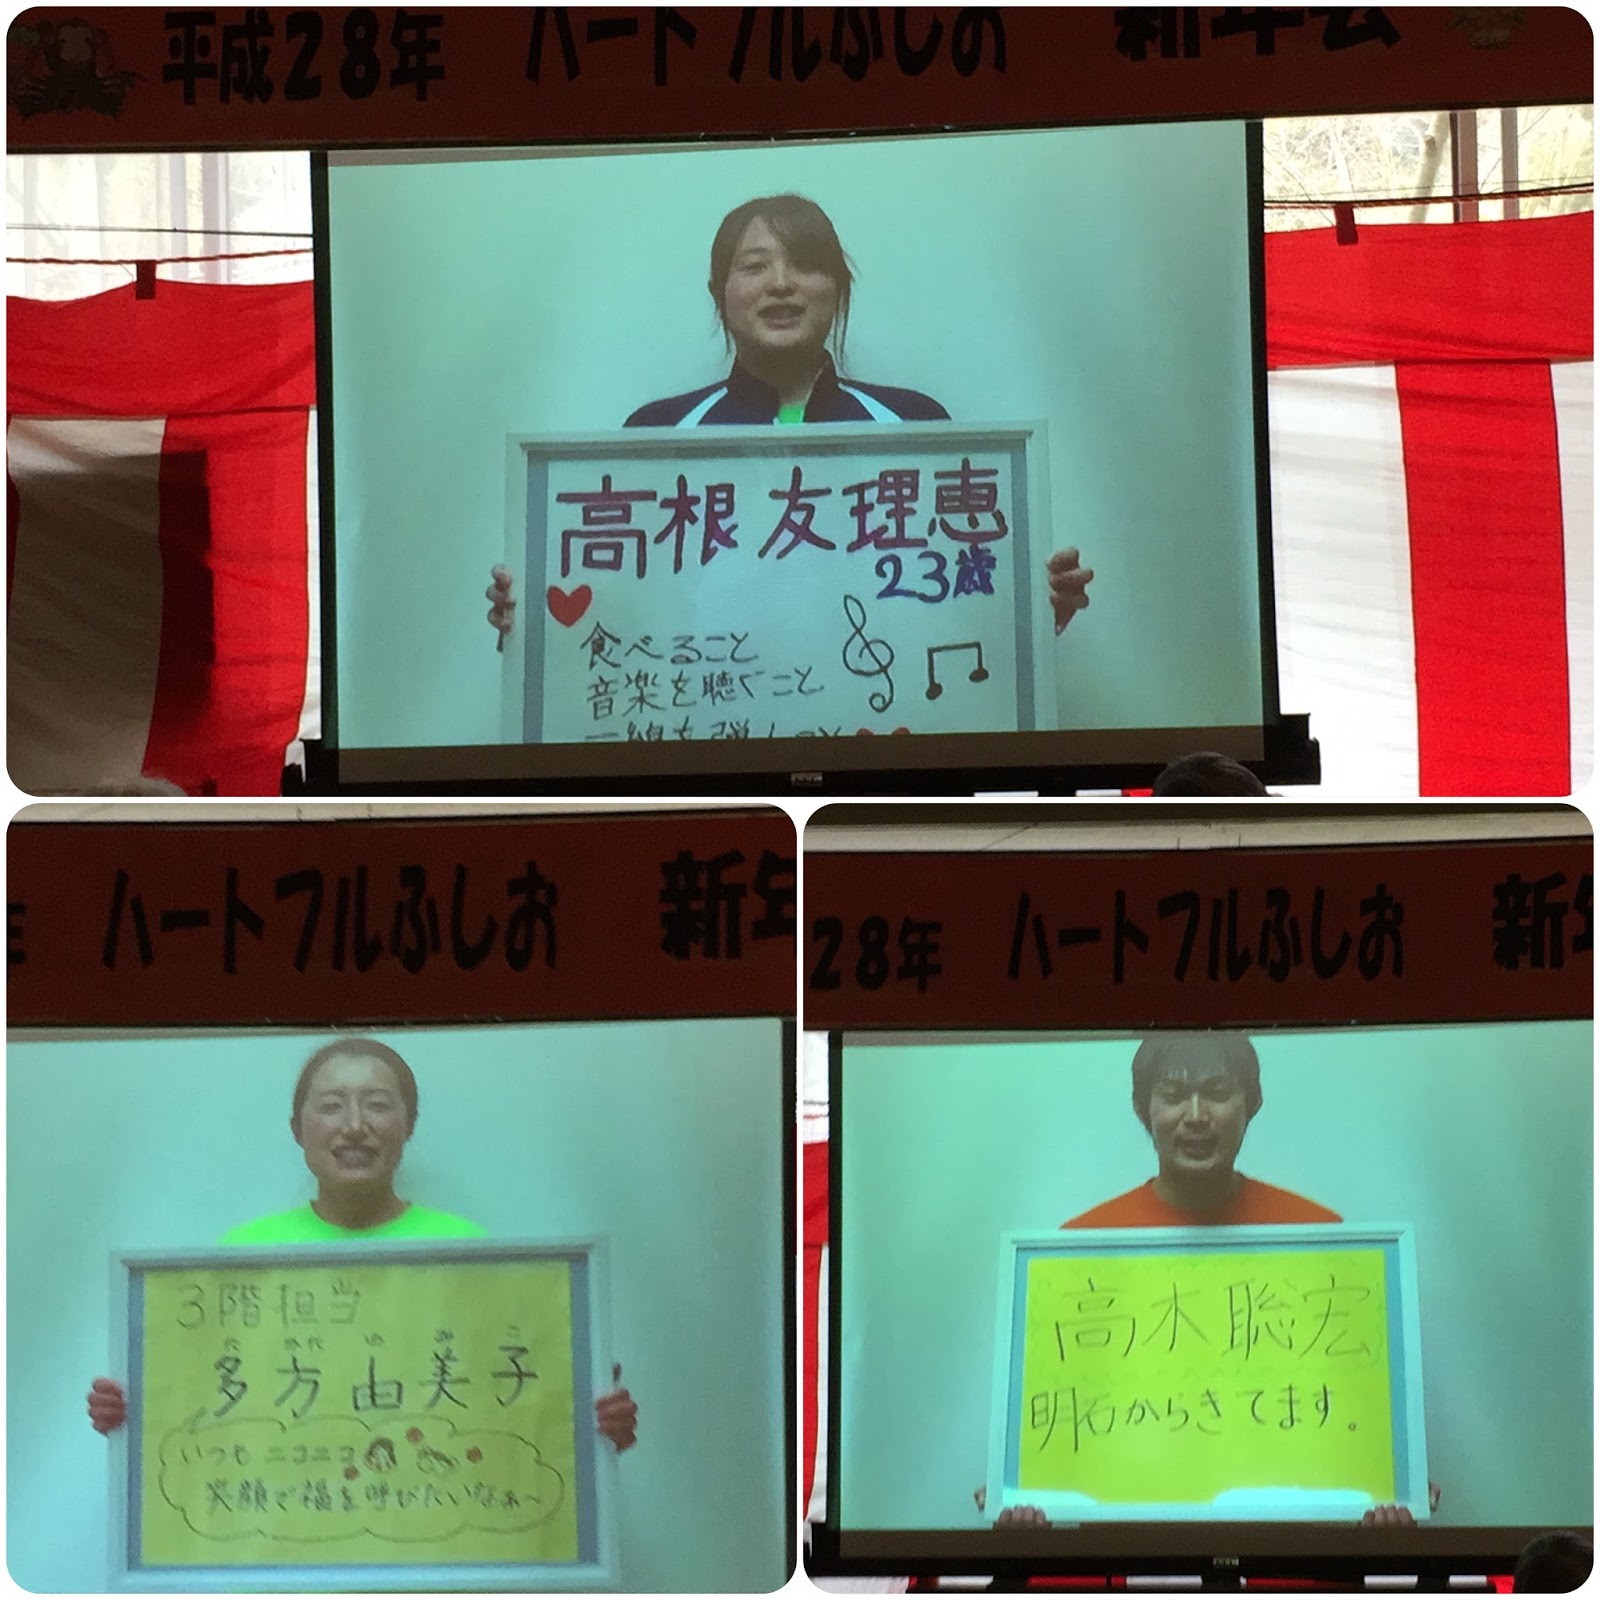 平成28年 ハートフルふしお 新年会
高根友理恵
23歳
食べること
音楽を聴くこと
ハートフルふしお 新年
3階担当
た かた ゆ み こ
多方由美子
いつもニコニコ
笑顔で福を呼びたいなぁ〜
28年 ハートフルふしお 新年
高木聡宏
明石からきてます。